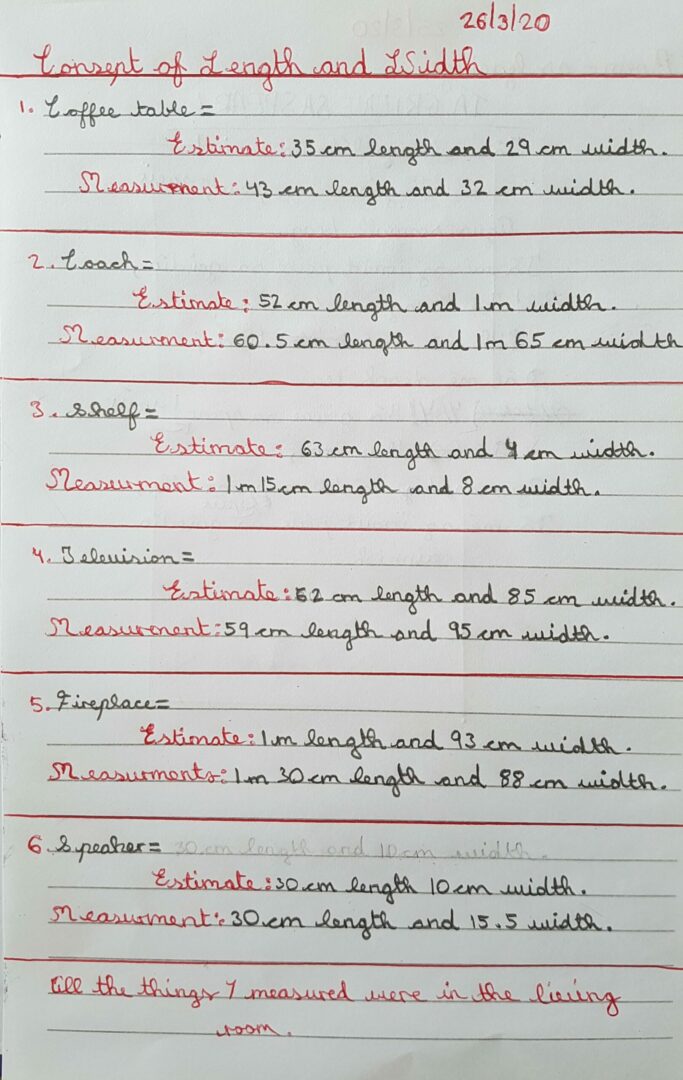 26/3/20
Consept of Length and Width
1. Coffee table =
Estimate: 35 cm length and 29 cm width.
Measurment: 43 cm length and 32 cm width.
2. Coach =
Estimate: 52 cm length and 1m width.
Measurment: 60.5 cm length and 1m 65 cm width
3. Shelf =
Estimate: 63 cm length and 4 cm width.
Measurment: 1m 15 cm length and 8 cm width.
4. Television =
Estimate: 52 cm length and 85 cm width.
Measurment: 59 cm length and 95 cm width.
5. Fireplace =
Estimate: 1m length and 93 cm width.
Measurments: 1m 30 cm length and 88 cm width.
6 Speaker = 30 cm length and 10 cm width.
Estimate: 30 cm length 10 cm width.
Measurment: 30 cm length and 15.5 width.
All the things I measured were in the lieving
room.